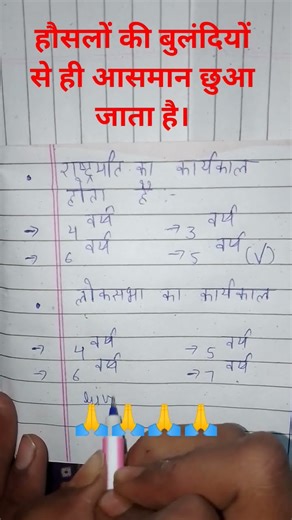 हौसलों की बुलंदियों
से ही आसमान छुआ
जाता है।
• राष्ट्रपति का कार्यकाल
होता है :-
→ 4 वर्ष → 3 वर्ष
→ 6 वर्ष → 5 वर्ष (√)
• लोकसभा का कार्यकाल
→ 4 वर्ष → 5 वर्ष
→ 6 वर्ष → 7 वर्ष